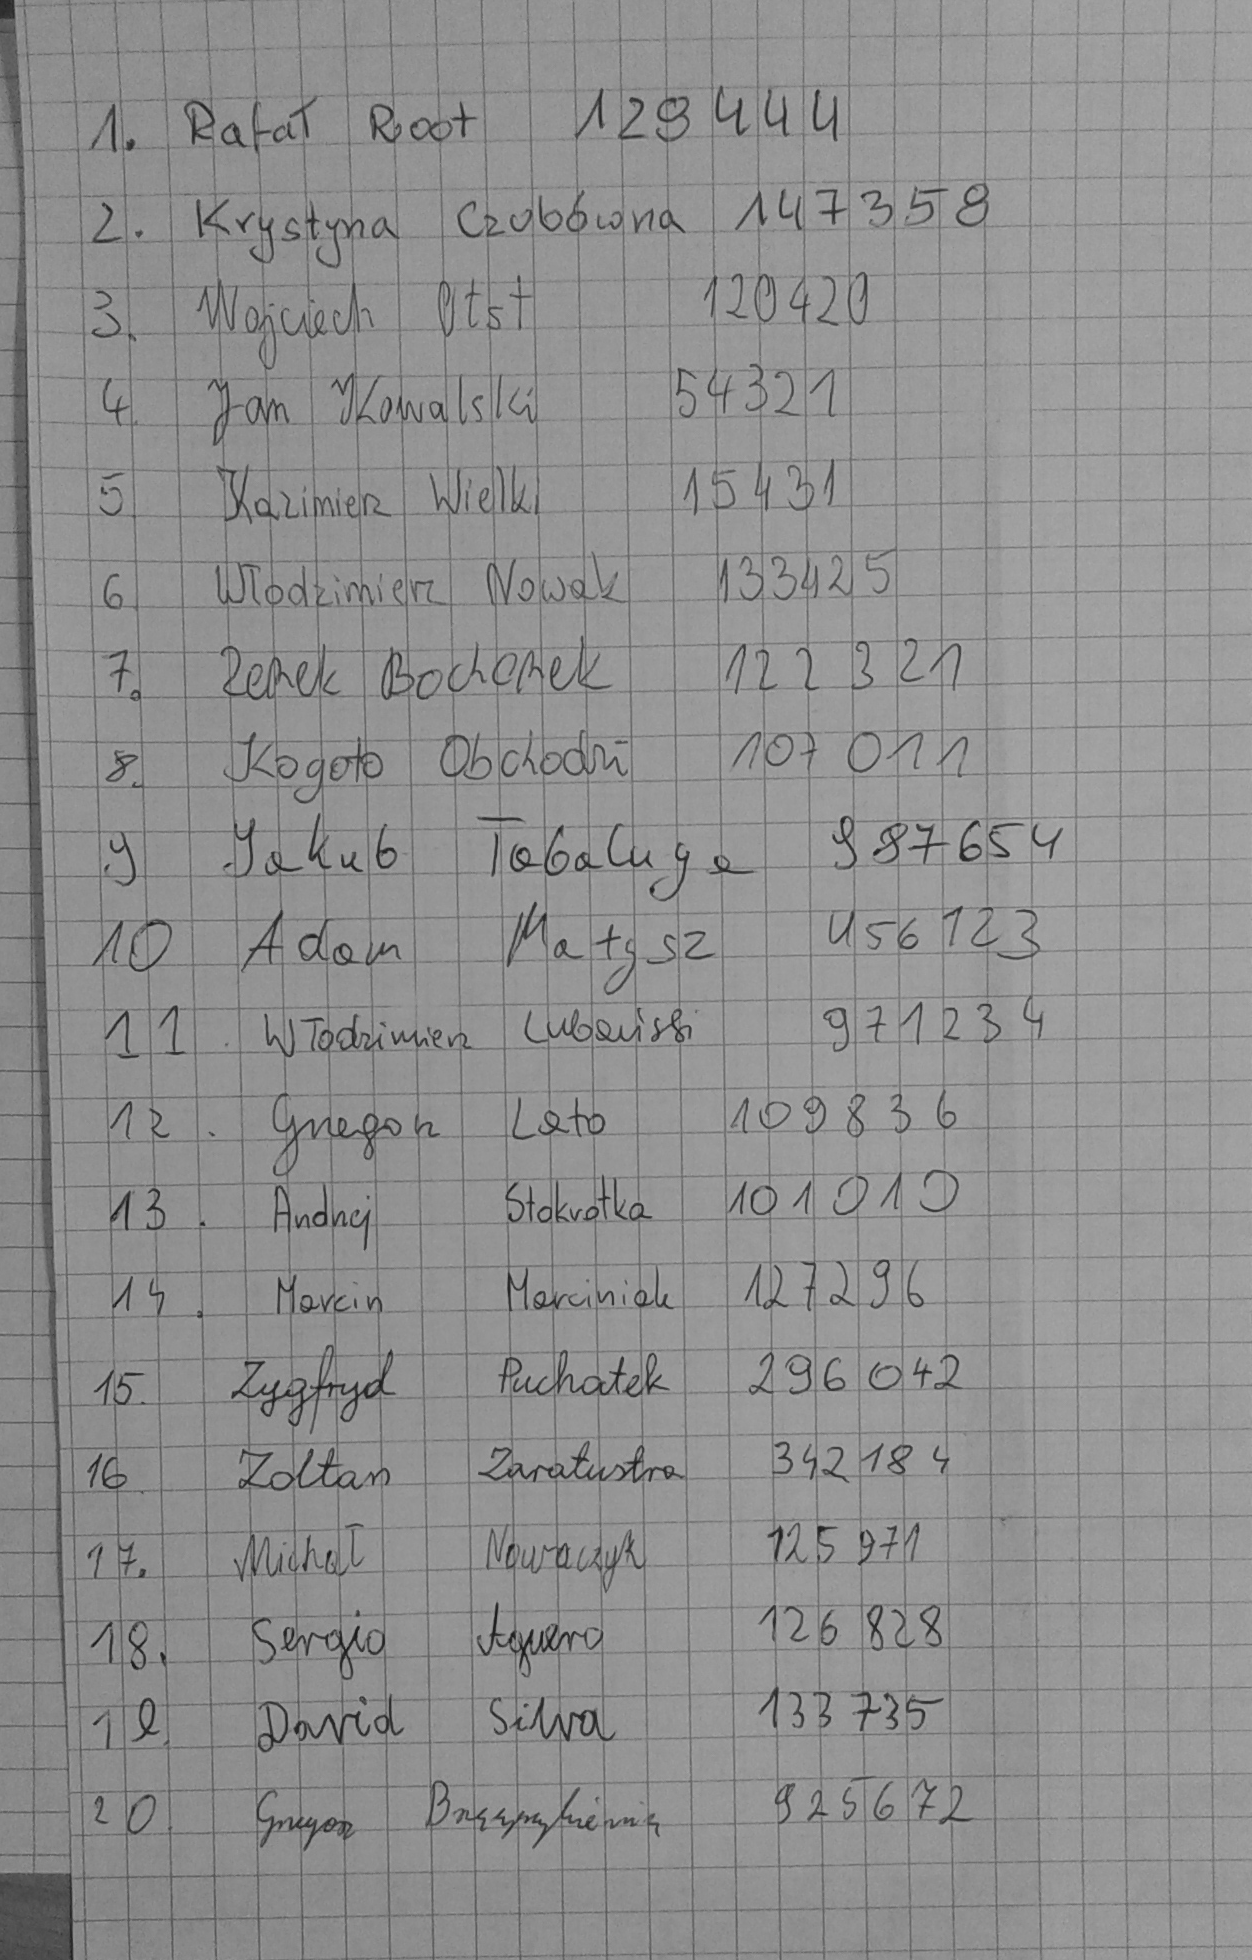 1. Rafał Root 129444
2. Krystyna Czubówna 147358
3. Wojciech Otst 120420
4. Jan Kowalski 54321
5 Kazimierz Wielki 15431
6 Włodzimierz Nowak 133425
7. Zenek Bochenek 122321
8. Kogoto Obchodzi 107011
9 Jakub Tabaluga 987654
10 Adam Małysz 456123
11. Włodzimierz 971234
12. Grzegorz Lato 109836
13. Andrzej Stokrotka 101010
14. Marcin Marciniak 127296
15. Zygfryd Puchatek 296042
16 Zoltan Zaratustra 342184
17. Michał Nowaczyk 125971
18. Sergio Aguero 126828
19. David Silva 133735
20 Grzegorz 925672